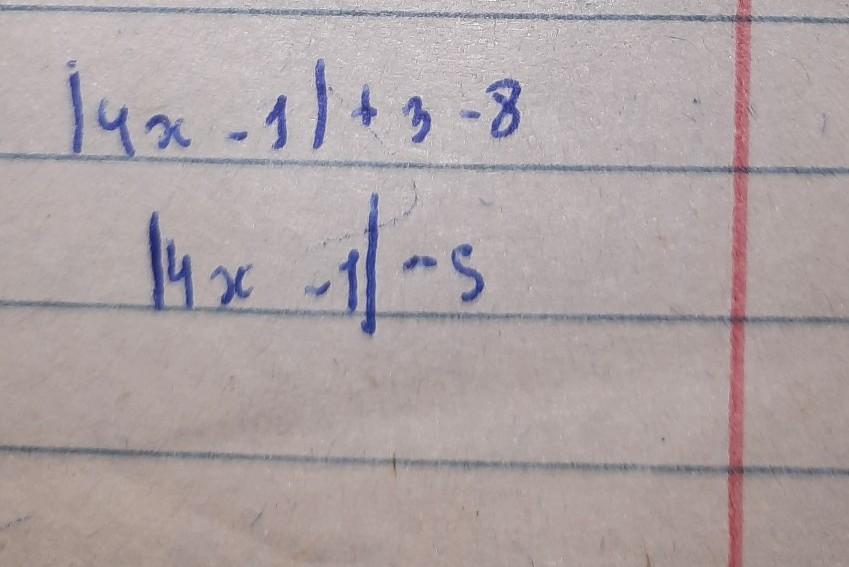 |4x - 1| + 3 - 8
|4x - 1| - 5